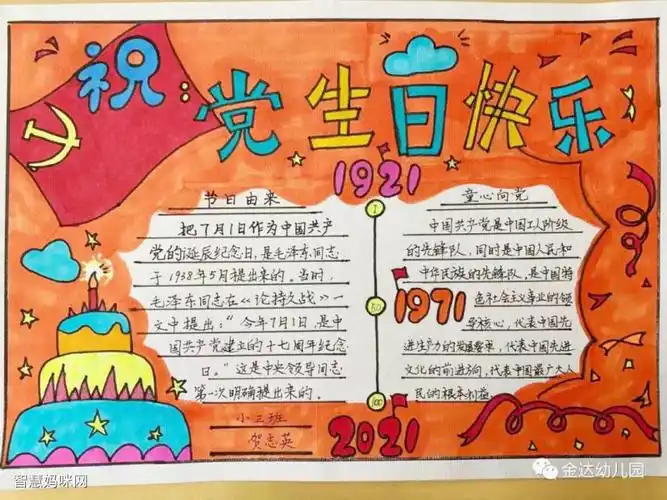 祝:党生日快乐
1921
节日由来
把7月1日作为中国共产
党的诞辰纪念日,是毛泽东同志
于1938年5月提出来的。当时,
毛泽东同志在《论持久战》一
文中提出:“今年7月1日,是中
国共产党建立的十七周年纪念
日。”这是中央领导同志
第一次明确提出来的。
小三班
贺志英
1
50
100
1971
2021
童心向党
中国共产党是中国工人阶级
的先锋队,同时是中国人民和
中华民族的先锋队,是中国特
色社会主义事业的领
导核心,代表中国先
进生产力的发展要求,代表中国先进
文化的前进方向,代表中国最广大人
民的根本利益。
智慧妈咪网
金达幼儿园